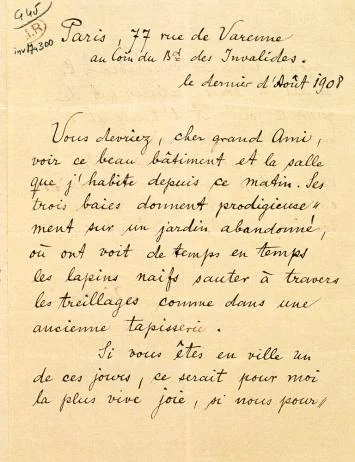 G45
J.R
inv 14300
Paris, 77 rue de Varenne
au Coin du Bd des Invalides.
le dernier d'Août 1908
Vous devriez, cher grand Ami,
voir ce beau bâtiment et la salle
que j'habite depuis ce matin. Ses
trois baies donnent prodigieuse"
ment sur un jardin abandonné,
où ont voit de temps en temps
les lapins naïfs sauter à travers
les treillages comme dans une
ancienne tapisserie.
Si vous êtes en ville un
de ces jours, ce serait pour moi
la plus vive joie, si nous pour"